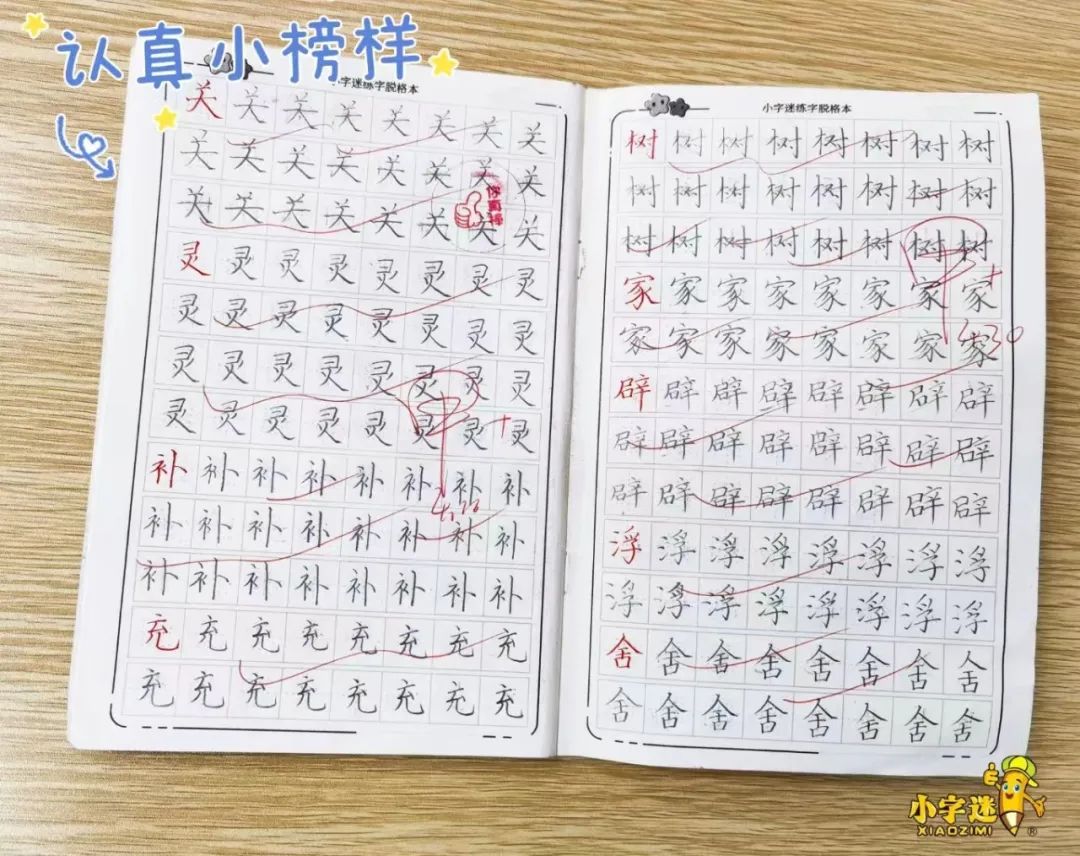 认真小榜样
小字迷练字脱格本
关关关关关关关关
关关关关关关关关
关关关关关关关关
你真棒
灵灵灵灵灵灵灵灵
灵灵灵灵灵灵灵灵
灵灵灵灵灵灵灵灵
灵灵灵灵灵灵灵灵
甲+
补补补补补补补补
补补补补补补补补
补补补补补补补补
充充充充充充充充
充充充充充充充充
小字迷练字脱格本
树树树树树树树树
树树树树树树树树
树树树树树树树树
甲+
家家家家家家家家
家家家家家家家家
辟辟辟辟辟辟辟辟
辟辟辟辟辟辟辟辟
辟辟辟辟辟辟辟辟
浮浮浮浮浮浮浮浮
浮浮浮浮浮浮浮浮
舍舍舍舍舍舍舍舍
舍舍舍舍舍舍舍舍
小字迷
XIAOZIMI